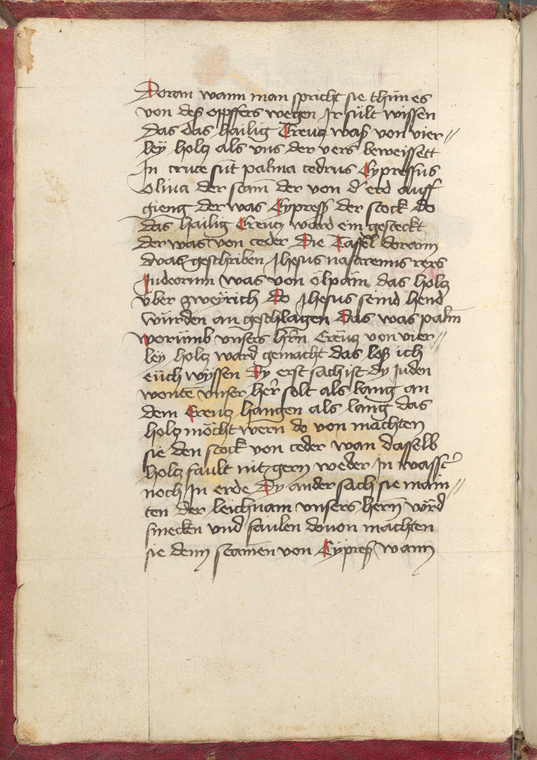 Doran wann man spricht sie thün es
von des opffers wegen Jr sült wissen
das das hailig Creuz was von vier//
ley holz als vns der vers beweissett
In cruce sūt palma cedrus Cypressus
Oliua der stam der von d' erd auff
gieng der was Cypress der stock do
das hailig Creuz ward ein gesteckt
der was von ceder Die Taffel doran
dwas geschriben Jhesus nasarenus rex
Iudeorum was von ölpain das holz
vber zwerich Do Jhesus seind hend
würden an geschlagen Das was palm
worümb vnsers hrn Creuz von vier//
ley holz ward gemacht das loß ich
eüch wyssen Dy erst sach ist dy juden
wonte vnser her solt als lang an
dem Creuz hangen als lang das
holz möcht wern do von machten
sie den stock von ceder wan dasselb
holz fault nit gern weder In wasser
noch In erde Dy ander sach sie main//
ten der leichnam vnsers hern würd
smecken vnd faulen douon machten
sie denn stamen von Cypress wann